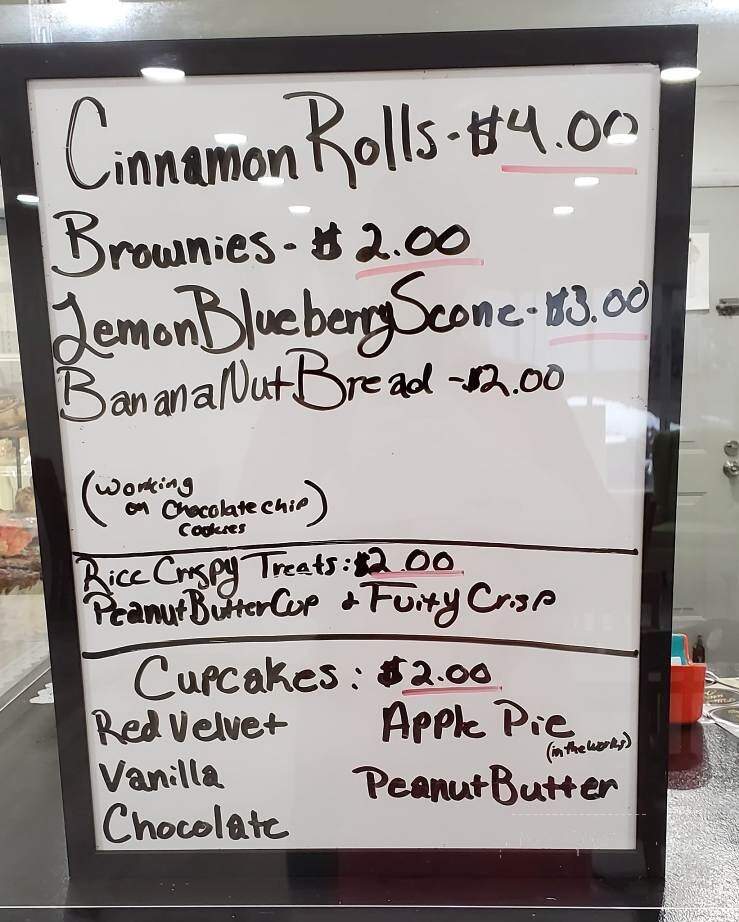 Cinnamon Rolls - $4.00
Brownies - $2.00
Lemon Blueberry Scone - $3.00
Banana Nut Bread - $2.00
(Working
on Chocolate chip)
Cookies
Rice Crispy Treats: $2.00
Peanut Butter Cup & Fuity Crisp
Cupcakes: $2.00
Red Velvet Apple Pie
(in the works)
Vanilla Peanut Butter
Chocolate